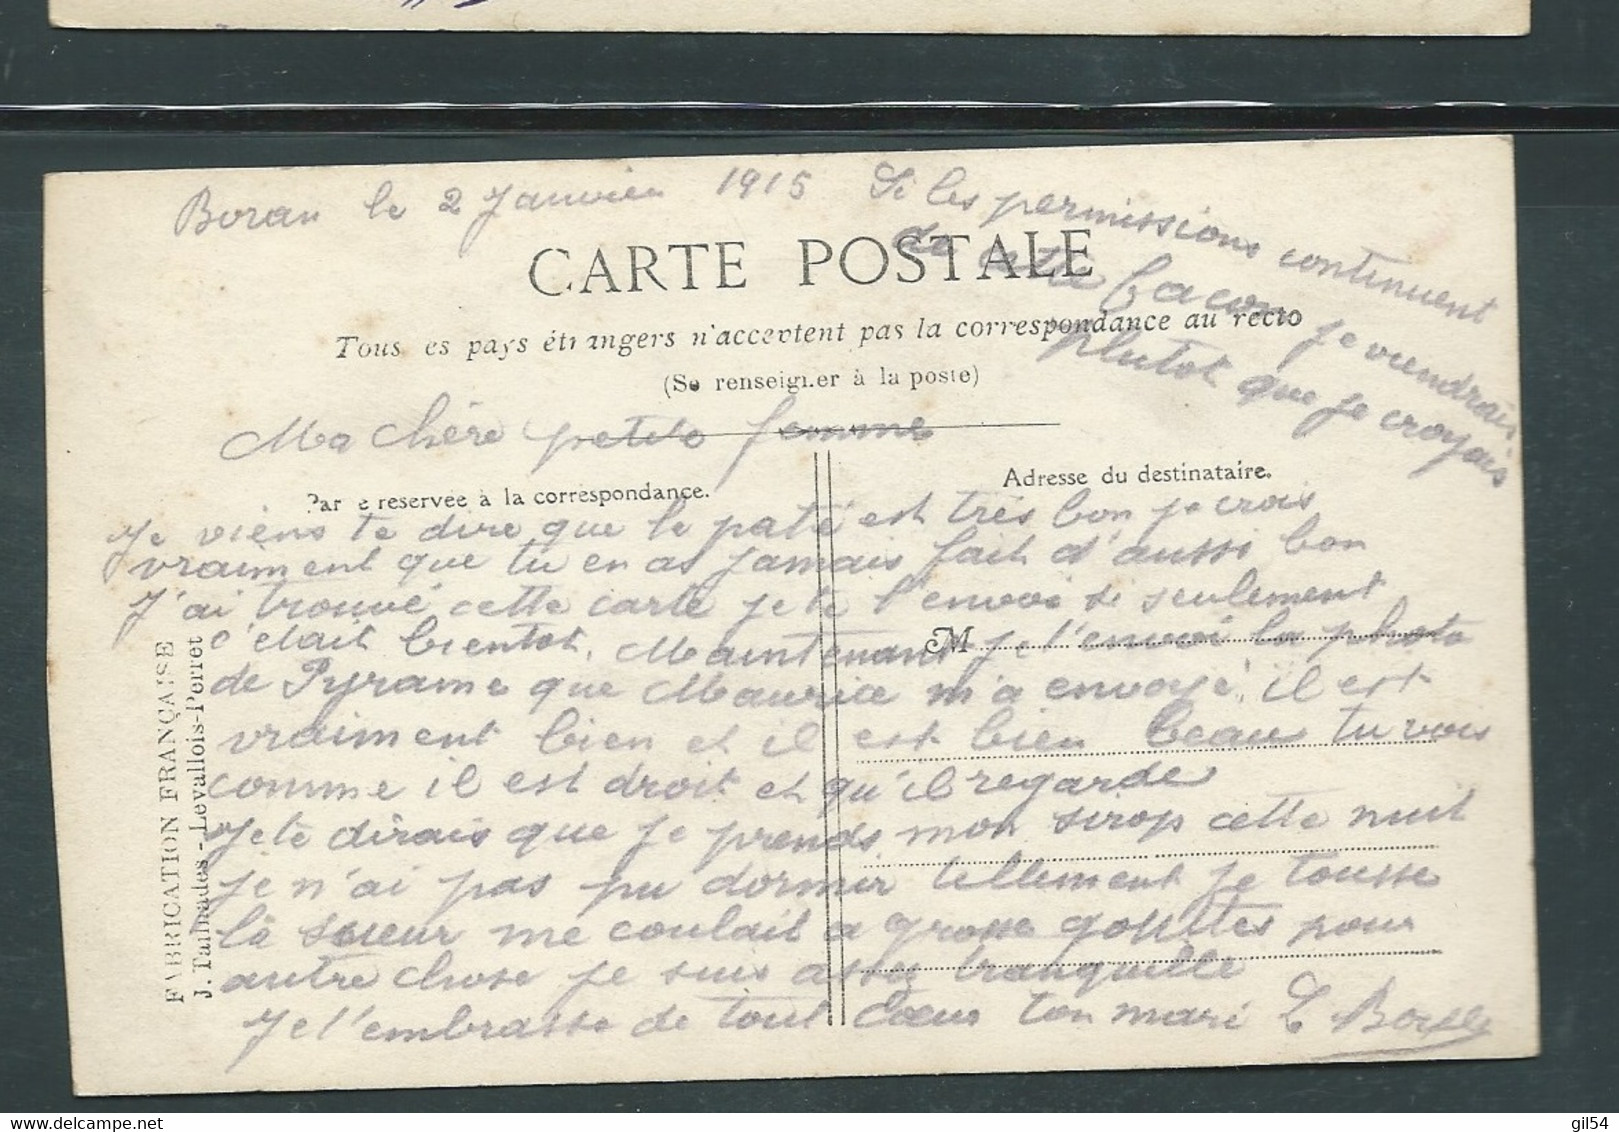 Boran le 2 Janvier 1915
Si les permissions continuent
de cette facon je viendrais
plutot que je croyais
CARTE POSTALE
Tous les pays étrangers n'acceptent pas la correspondance au recto
(Se renseigner à la poste)
Ma chère petite femme
Partie reservée à la correspondance.
Adresse du destinataire.
Je viens te dire que le paté est très bon je crois
vraiment que tu en as jamais fait d'aussi bon
J'ai trouvé cette carte je te l'envoi si seulement
c'était bientot. Maintenant je t'envoi la photo
M
de Pyrame que Maurice m'a envoyé, il est
vraiment bien et il est bien beau tu vois
comme il est droit et qu'il regarde
Je te dirais que je prends mon sirop cette nuit
je n'ai pas pu dormir tellement je tousse
la sueur me coulait a grosse gouttes pour
autre chose je suis assez tranquille
Je t'embrasse de tout Coeur ton mari
FABRICATION FRANÇAISE
J. Tailhades - Levallois-Perret
gil54